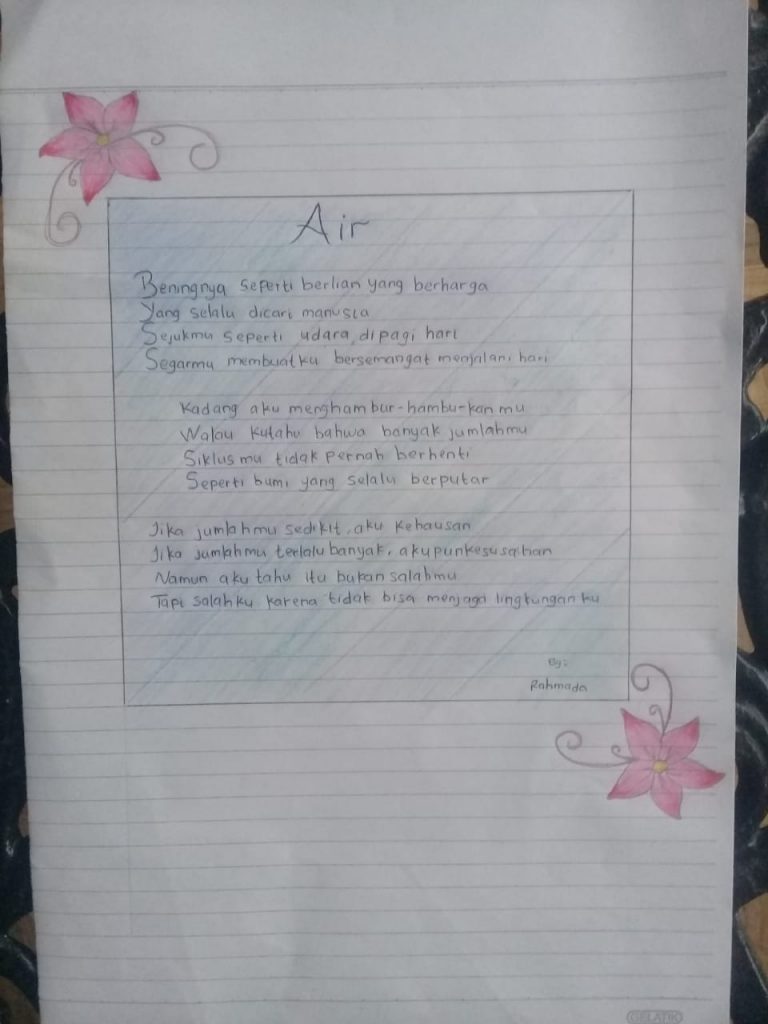 Air
Beningnya seperti berlian yang berharga
Yang selalu dicari manusia
Sejukmu seperti udara dipagi hari
Segarmu membuatku bersemangat menjalani hari
Kadang aku menghambur-hambu-kan mu
Walau kutahu bahwa banyak jumlahmu
Siklus mu tidak pernah berhenti
Seperti bumi yang selalu berputar
Jika jumlahmu sedikit, aku kehausan
Jika jumlahmu terlalu banyak, akupun kesusahan
Namun aku tahu itu bukan salahmu
Tapi salahku karena tidak bisa menjaga lingkungan ku
By:
Rahmada
GELATIK